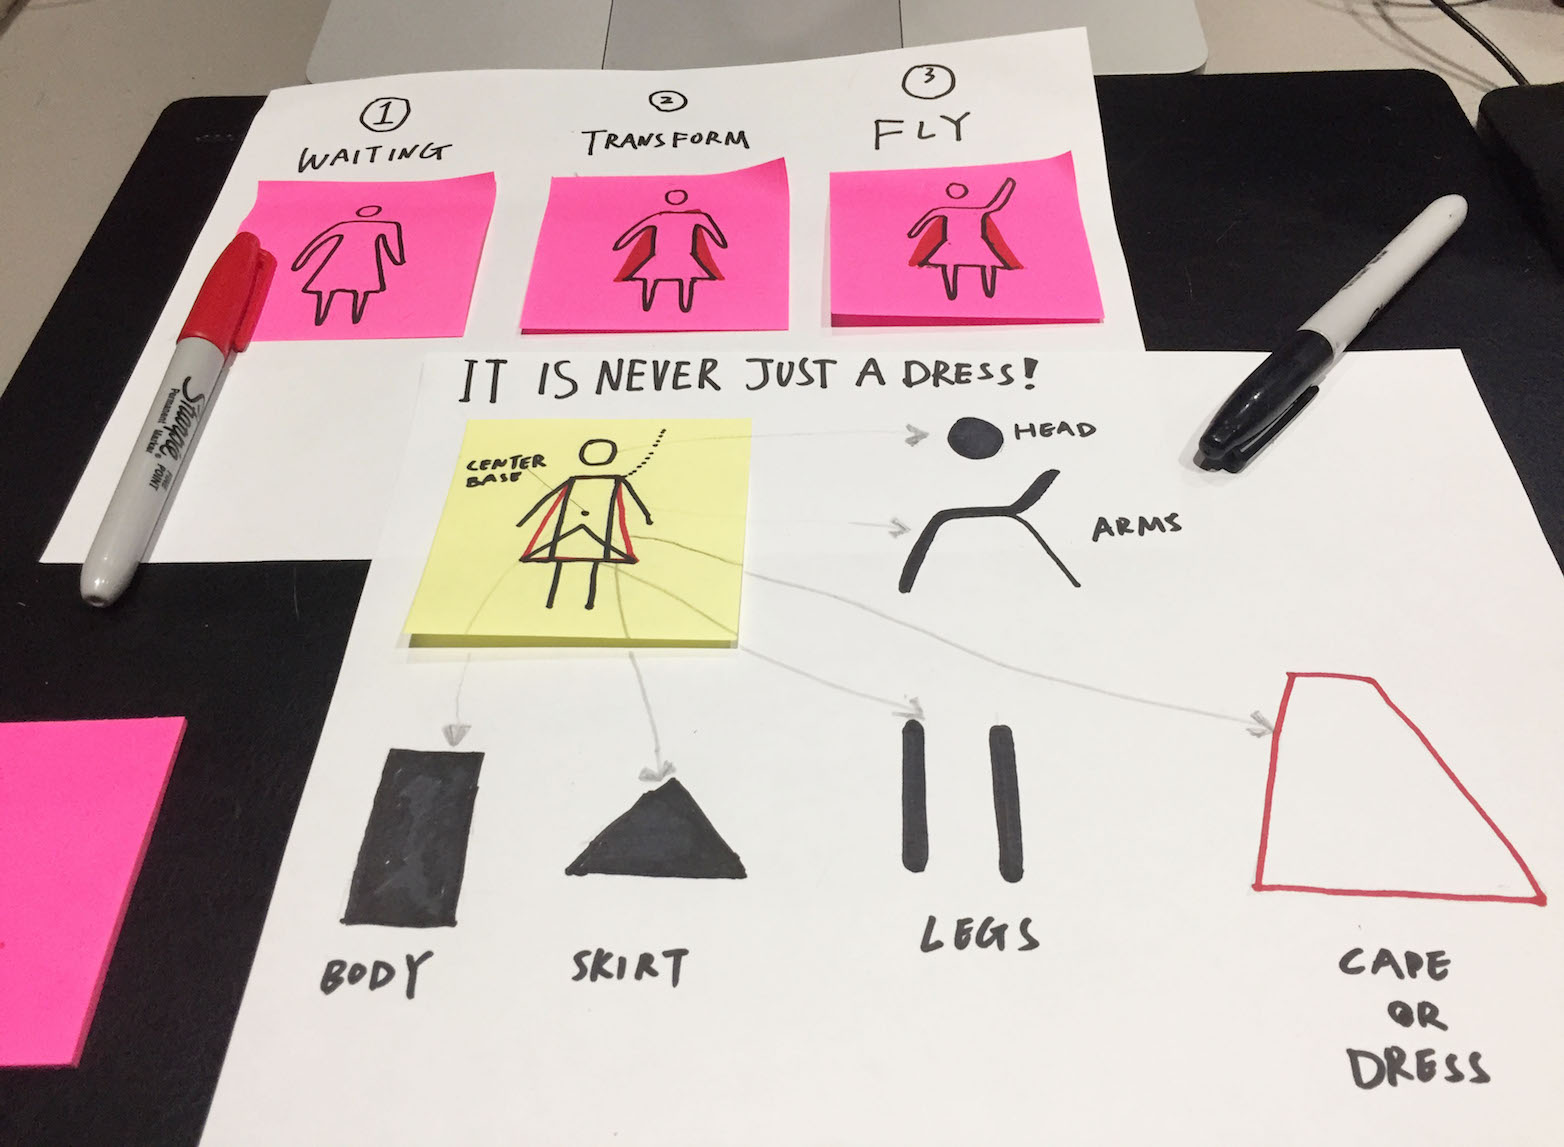 1
WAITING
2
TRANSFORM
3
FLY
IT IS NEVER JUST A DRESS!
CENTER
BASE
HEAD
ARMS
BODY
SKIRT
LEGS
CAPE
OR
DRESS
Sharpie
Permanent Marker
FINE POINT